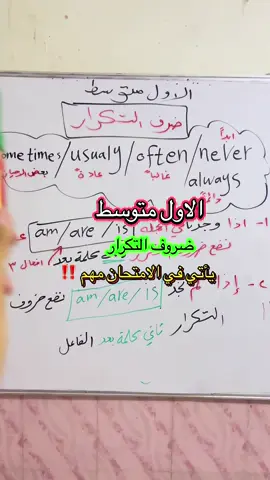 الاول متوسط
ظرف التكرار
ometimes/usualy/often/never
always
ابداً
غالباً
عادةً
بعض
الاول متوسط
ضروف التكرار
يأتي في الامتحان مهم ‼️
١- اذا وجدنا am/are/is
نضع بعد افعال ٣
٢- إذا لم نجد am/are/is نضع ضروف
التكرار ثاني كلمة بعد الفاعل